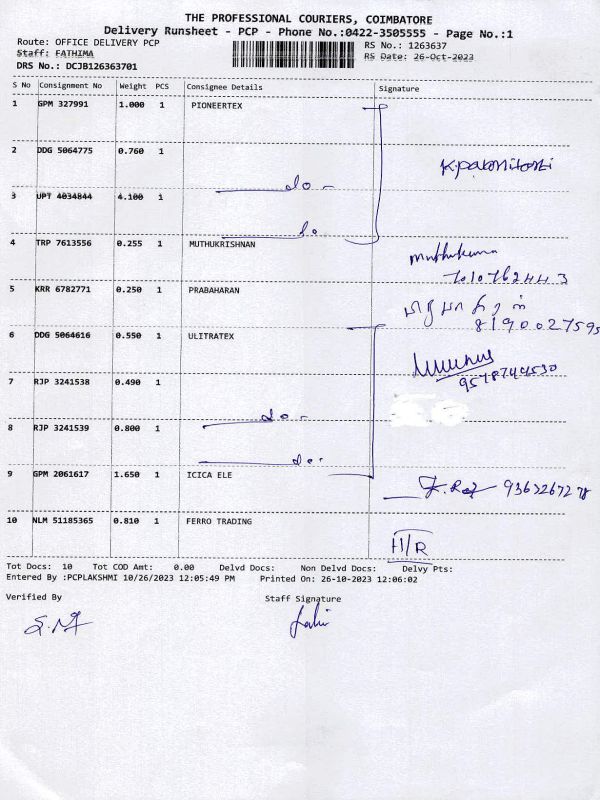 THE PROFESSIONAL COURIERS, COIMBATORE
Delivery Runsheet - PCP - Phone No.:0422-3505555 - Page No.:1
Route: OFFICE DELIVERY PCP
RS No.: 1263637
Staff: FATHIMA
RS Date: 26-Oct-2023
DRS No.: DCJB126363701
S No Consignment No Weight PCS Consignee Details Signature
1 GPM 327991 1.000 1 PIONEERTEX
2 DDG 5064775 0.760 1
do -
3 UPT 4034844 4.100 1
do
4 TRP 7613556 0.255 1 MUTHUKRISHNAN
5 KRR 6782771 0.250 1 PRABAHARAN
6 DDG 5064616 0.550 1 ULITRATEX
9578744530
7 RJP 3241538 0.490 1
do -
8 RJP 3241539 0.800 1
do -
9 GPM 2061617 1.650 1 ICICA ELE
10 NLM 51185365 0.810 1 FERRO TRADING
H/R
Tot Docs: 10 Tot COD Amt: 0.00 Delvd Docs: Non Delvd Docs: Delvy Pts:
Entered By :PCPLAKSHMI 10/26/2023 12:05:49 PM Printed On: 26-10-2023 12:06:02
Verified By Staff Signature